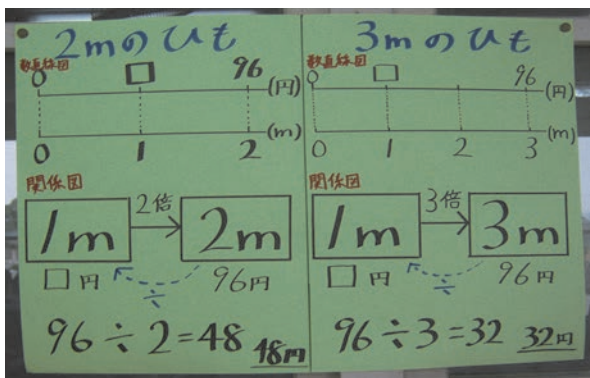 2mのひも
数直線図
0 □ 96 (円)
0 1 2 (m)
関係図
1m 2倍 2m
□円 ÷ 96円
96÷2=48 48円
3mのひも
数直線図
0 □ 96 (円)
0 1 2 3 (m)
関係図
1m 3倍 3m
□円 ÷ 96円
96÷3=32 32円